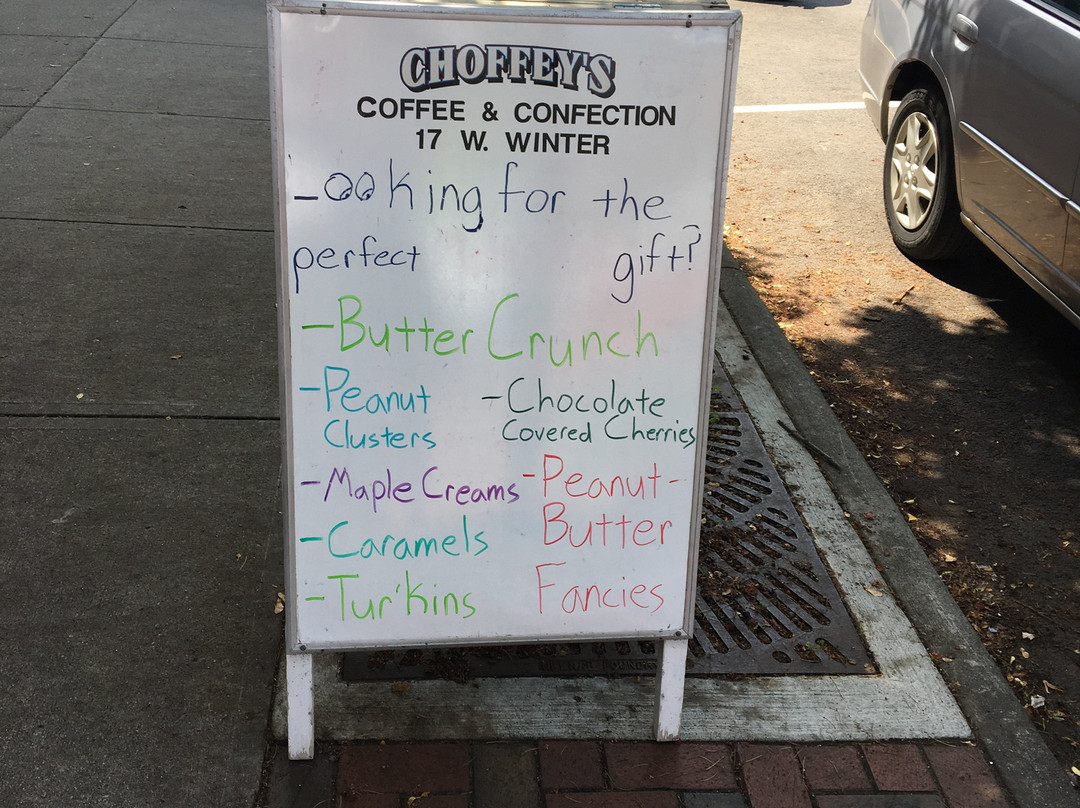 CHOFFEY'S
COFFEE & CONFECTION
17 W. WINTER
Looking for the
perfect gift?
-Butter Crunch
-Peanut
Clusters
-Chocolate
Covered Cherries
-Maple Creams
-Peanut-
Butter
Fancies
-Caramels
-Tur'kins